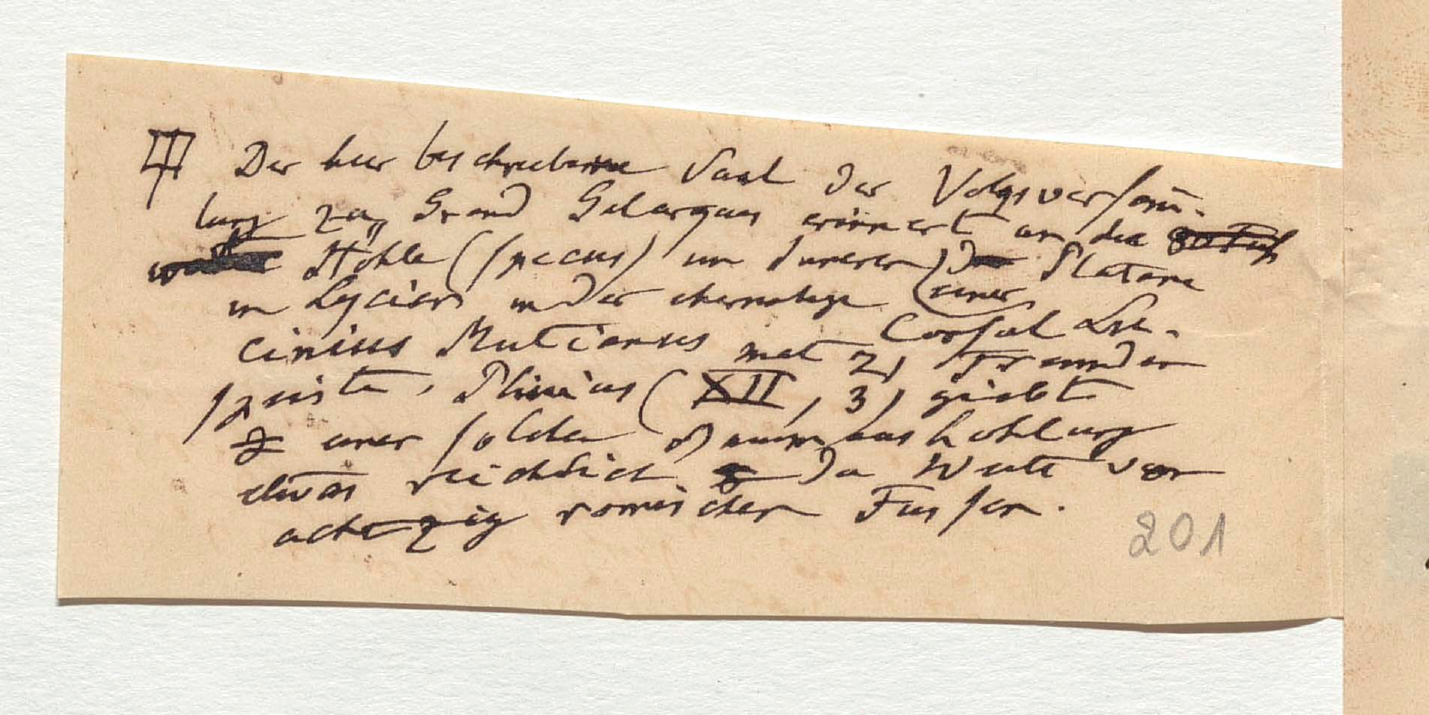 Der hier beschriebene Saal der Volksversam̄-
lung zu Grand Galargues erinnert an die
Höhle (specus) im Inneren einer Platane
in Lycien in der ehemalige Consul Li-
cinius Mutianus mit 21 Fremden
speiste. Plinius (XII, 3) giebt
einer solchen Baumaushöhlung
etwas reichlich die Weite von
achtzig römischen Fussen.
201